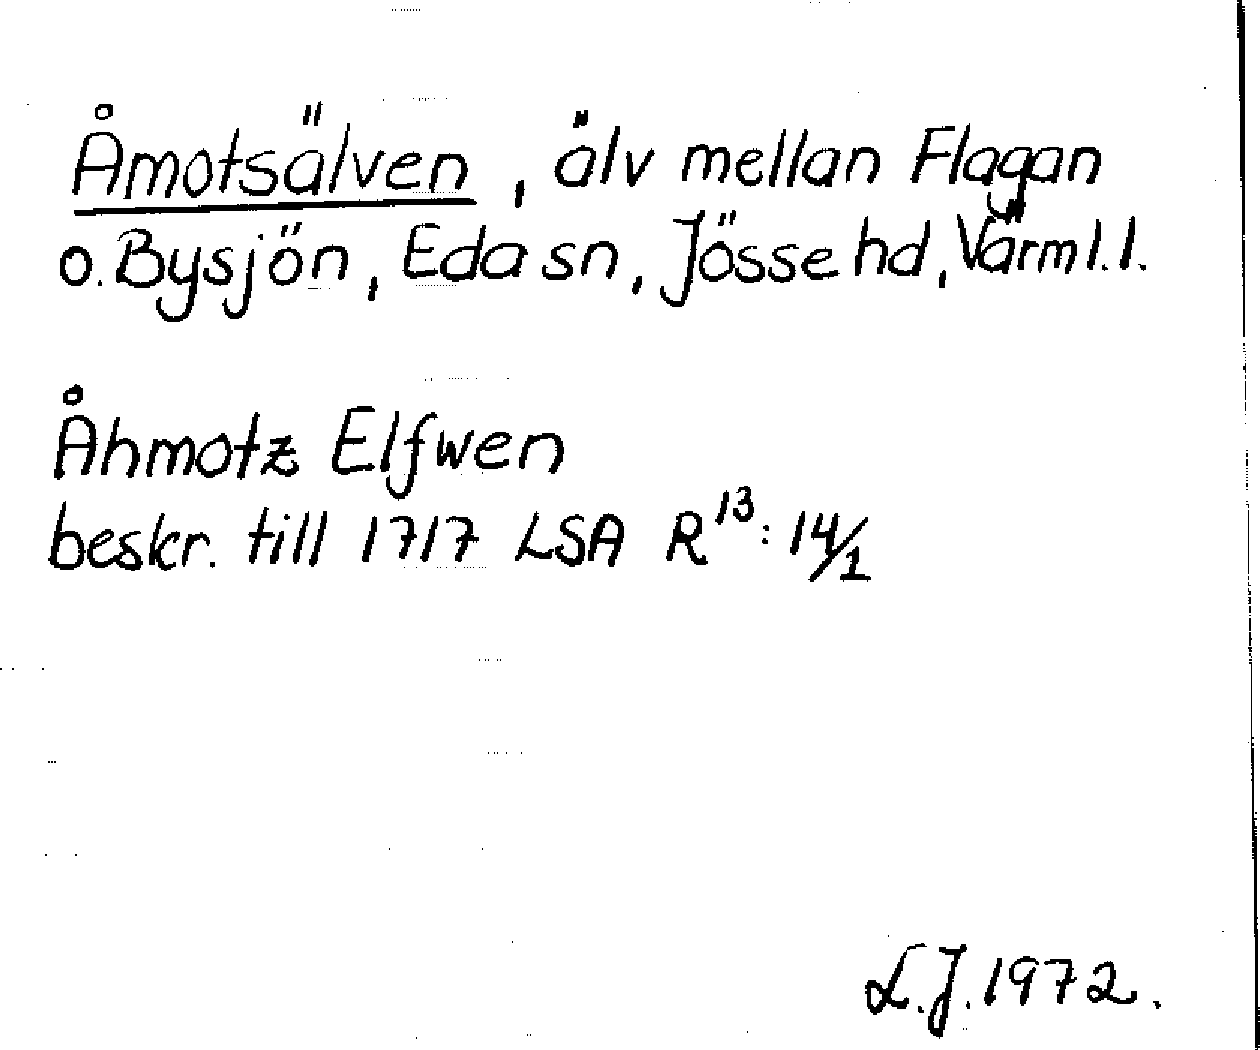 Åmotsälven, älv mellan Flagan
o. Bysjön, Eda sn, Jösse hd, Värml. l.
Åhmotz Elfwen
beskr. till 1717 LSA R¹³: 14/1
L.J. 1972.